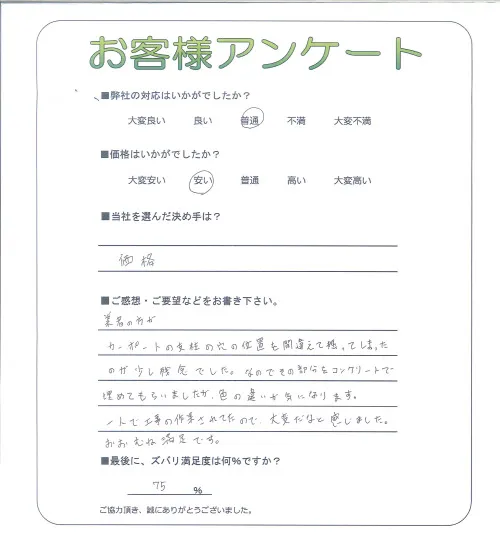 お客様アンケート
■弊社の対応はいかがでしたか？
大変良い 良い 普通 不満 大変不満
■価格はいかがでしたか？
大変安い 安い 普通 高い 大変高い
■当社を選んだ決め手は？
価格
■ご感想・ご要望などをお書き下さい。
業者の方が
カーポートの支柱の穴の位置を間違えて掘ってしまった
のが少し残念でした。なのでその部分をコンクリートで
埋めてもらいましたが、色の違いが気になります。
ートで工事の作業されてたので、大変だなと感じました。
おおむね満足です。
■最後に、ズバリ満足度は何%ですか？
75 %
ご協力頂き、誠にありがとうございました。